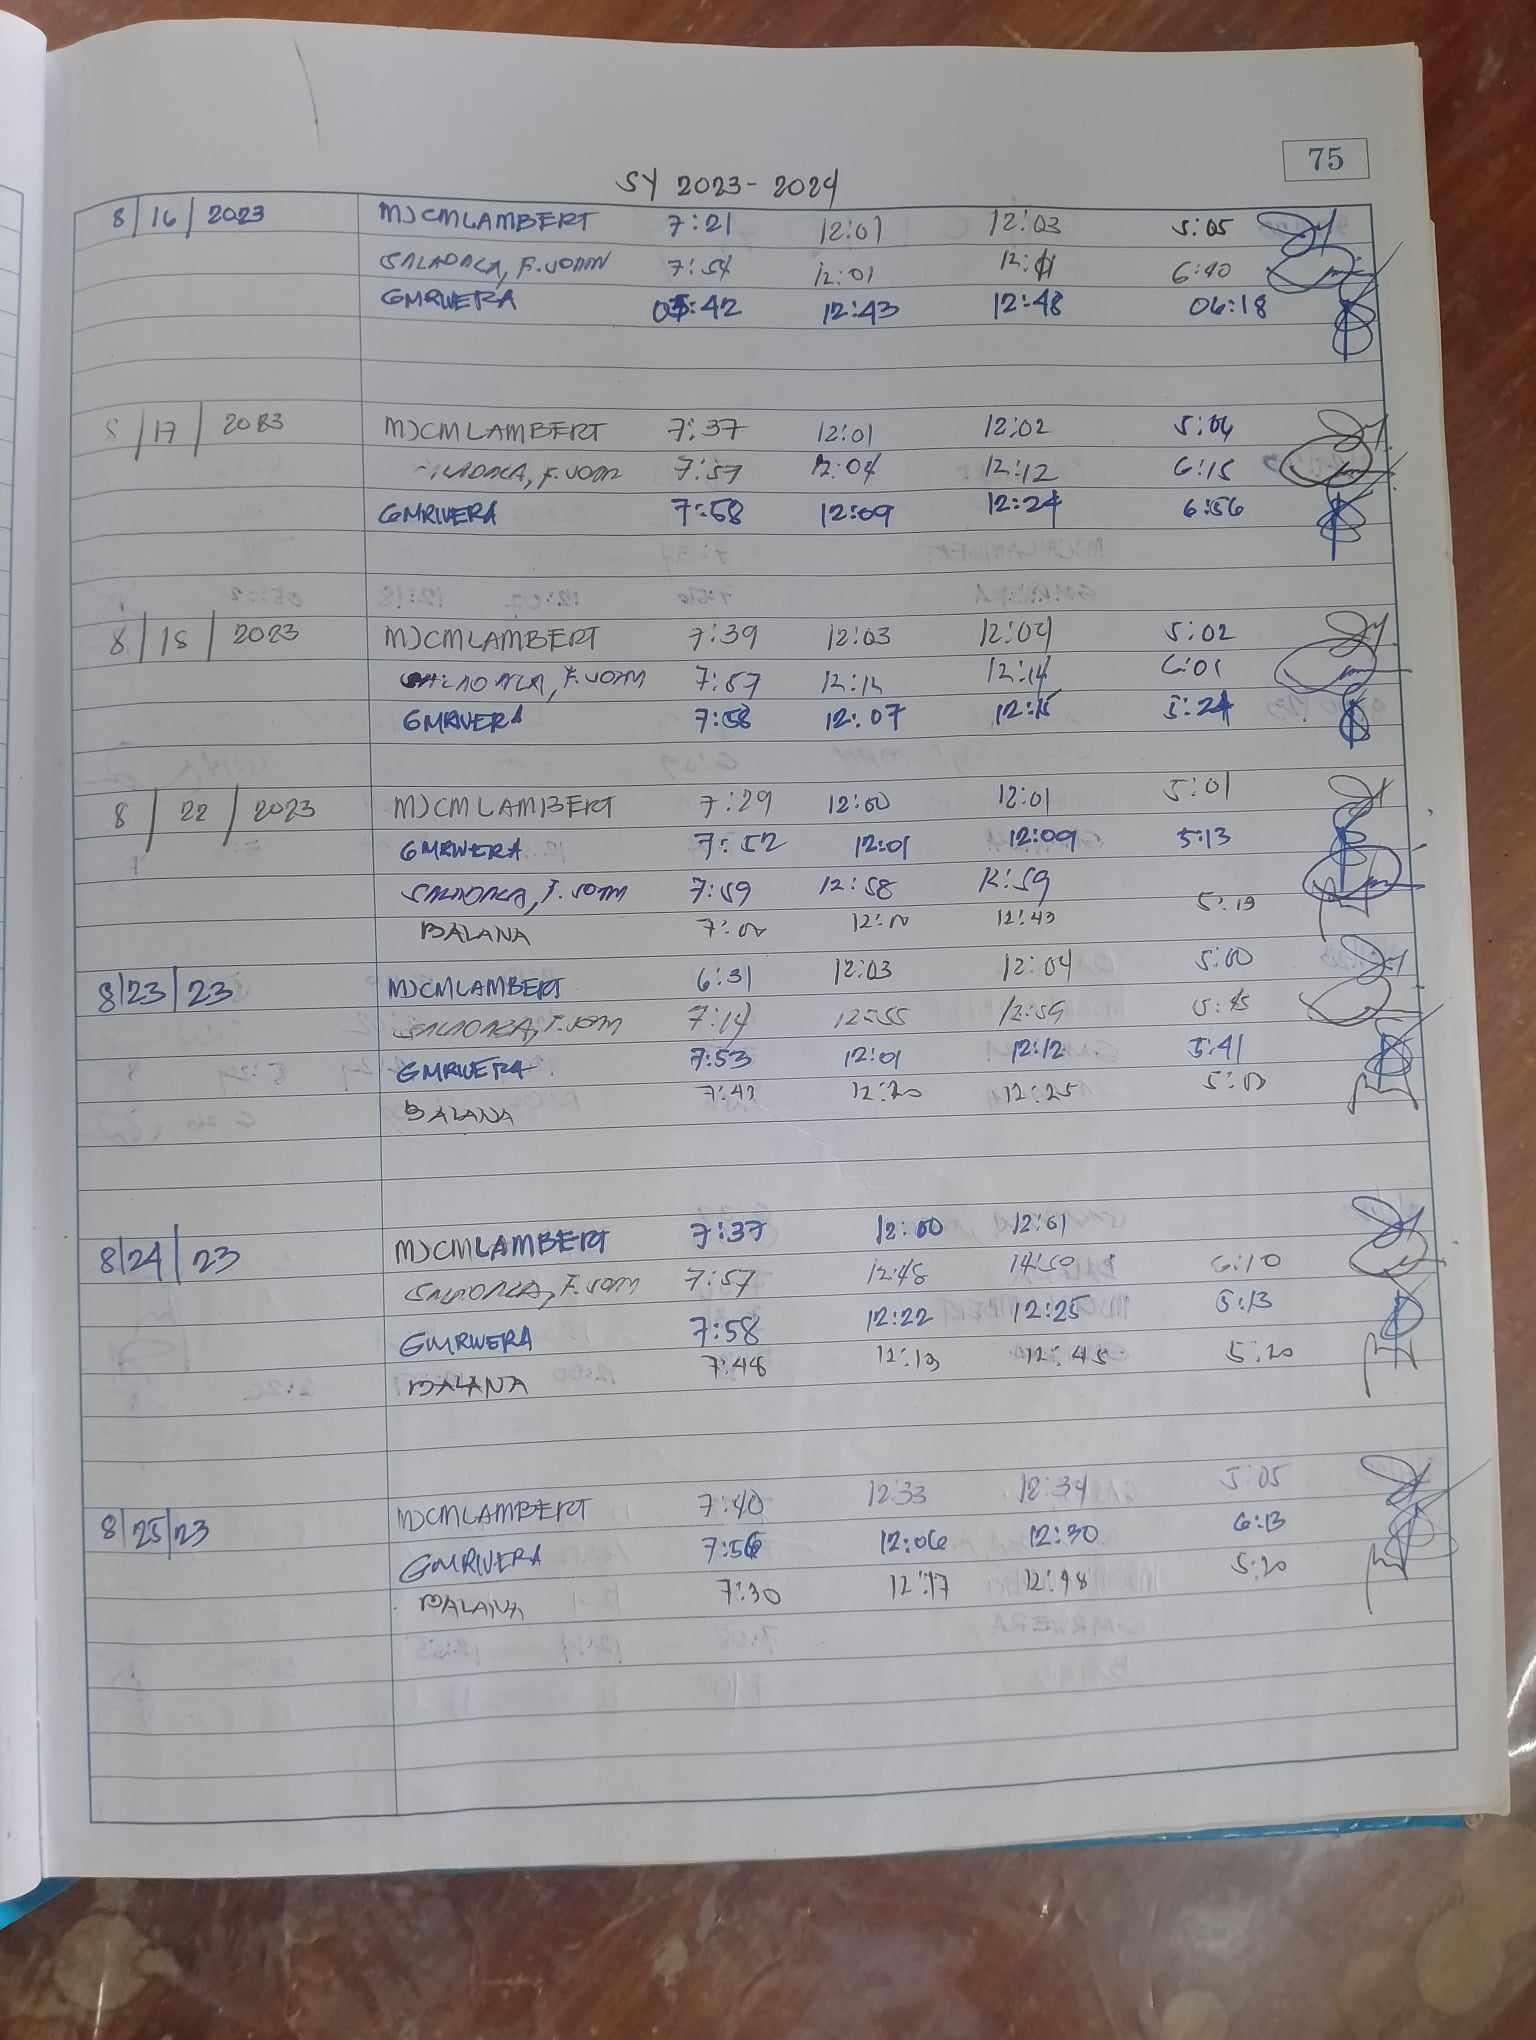 75
SY 2023-2024
8/16/2023 MJCMLAMBERT 7:21 12:01 12:03 5:05
7:54 12:01 6:40
GMRIVERA :42 12:43 12:48 06:18
8/17/2023 MJCMLAMBERT 7:37 12:01 12:02 5:04
7:57 12:04 12:12 6:15
GMRIVERA 7:58 12:09 12:24 6:56
8/18/2023 MJCMLAMBERT 7:39 12:03 12:04 5:02
7:57 12:12 12:14 6:01
GMRIVERA 7:58 12:07 12:15 5:24
8/22/2023 MJCMLAMBERT 7:29 12:00 12:01 5:01
GMRIVERA 7:52 12:01 12:09 5:13
7:59 12:58 12:59
BALANA 12:43 5:13
8/23/23 MJCMLAMBERT 6:31 12:03 12:04 5:00
7:14 12:55 12:59 5:45
GMRIVERA 7:53 12:01 12:12 5:41
BALANA 7:43 12:20 12:25
8/24/23 MJCMLAMBERT 7:37 12:00 12:01
7:57 12:48 6:10
GMRIVERA 7:58 12:22 12:25 5:13
BALANA 7:48 12:13 12:45 5:20
8/25/23 MJCMLAMBERT 7:40 12:33 12:34 5:05
GMRIVERA 7:56 12:06 12:30 6:13
BALANA 7:30 12:17 12:48 5:20